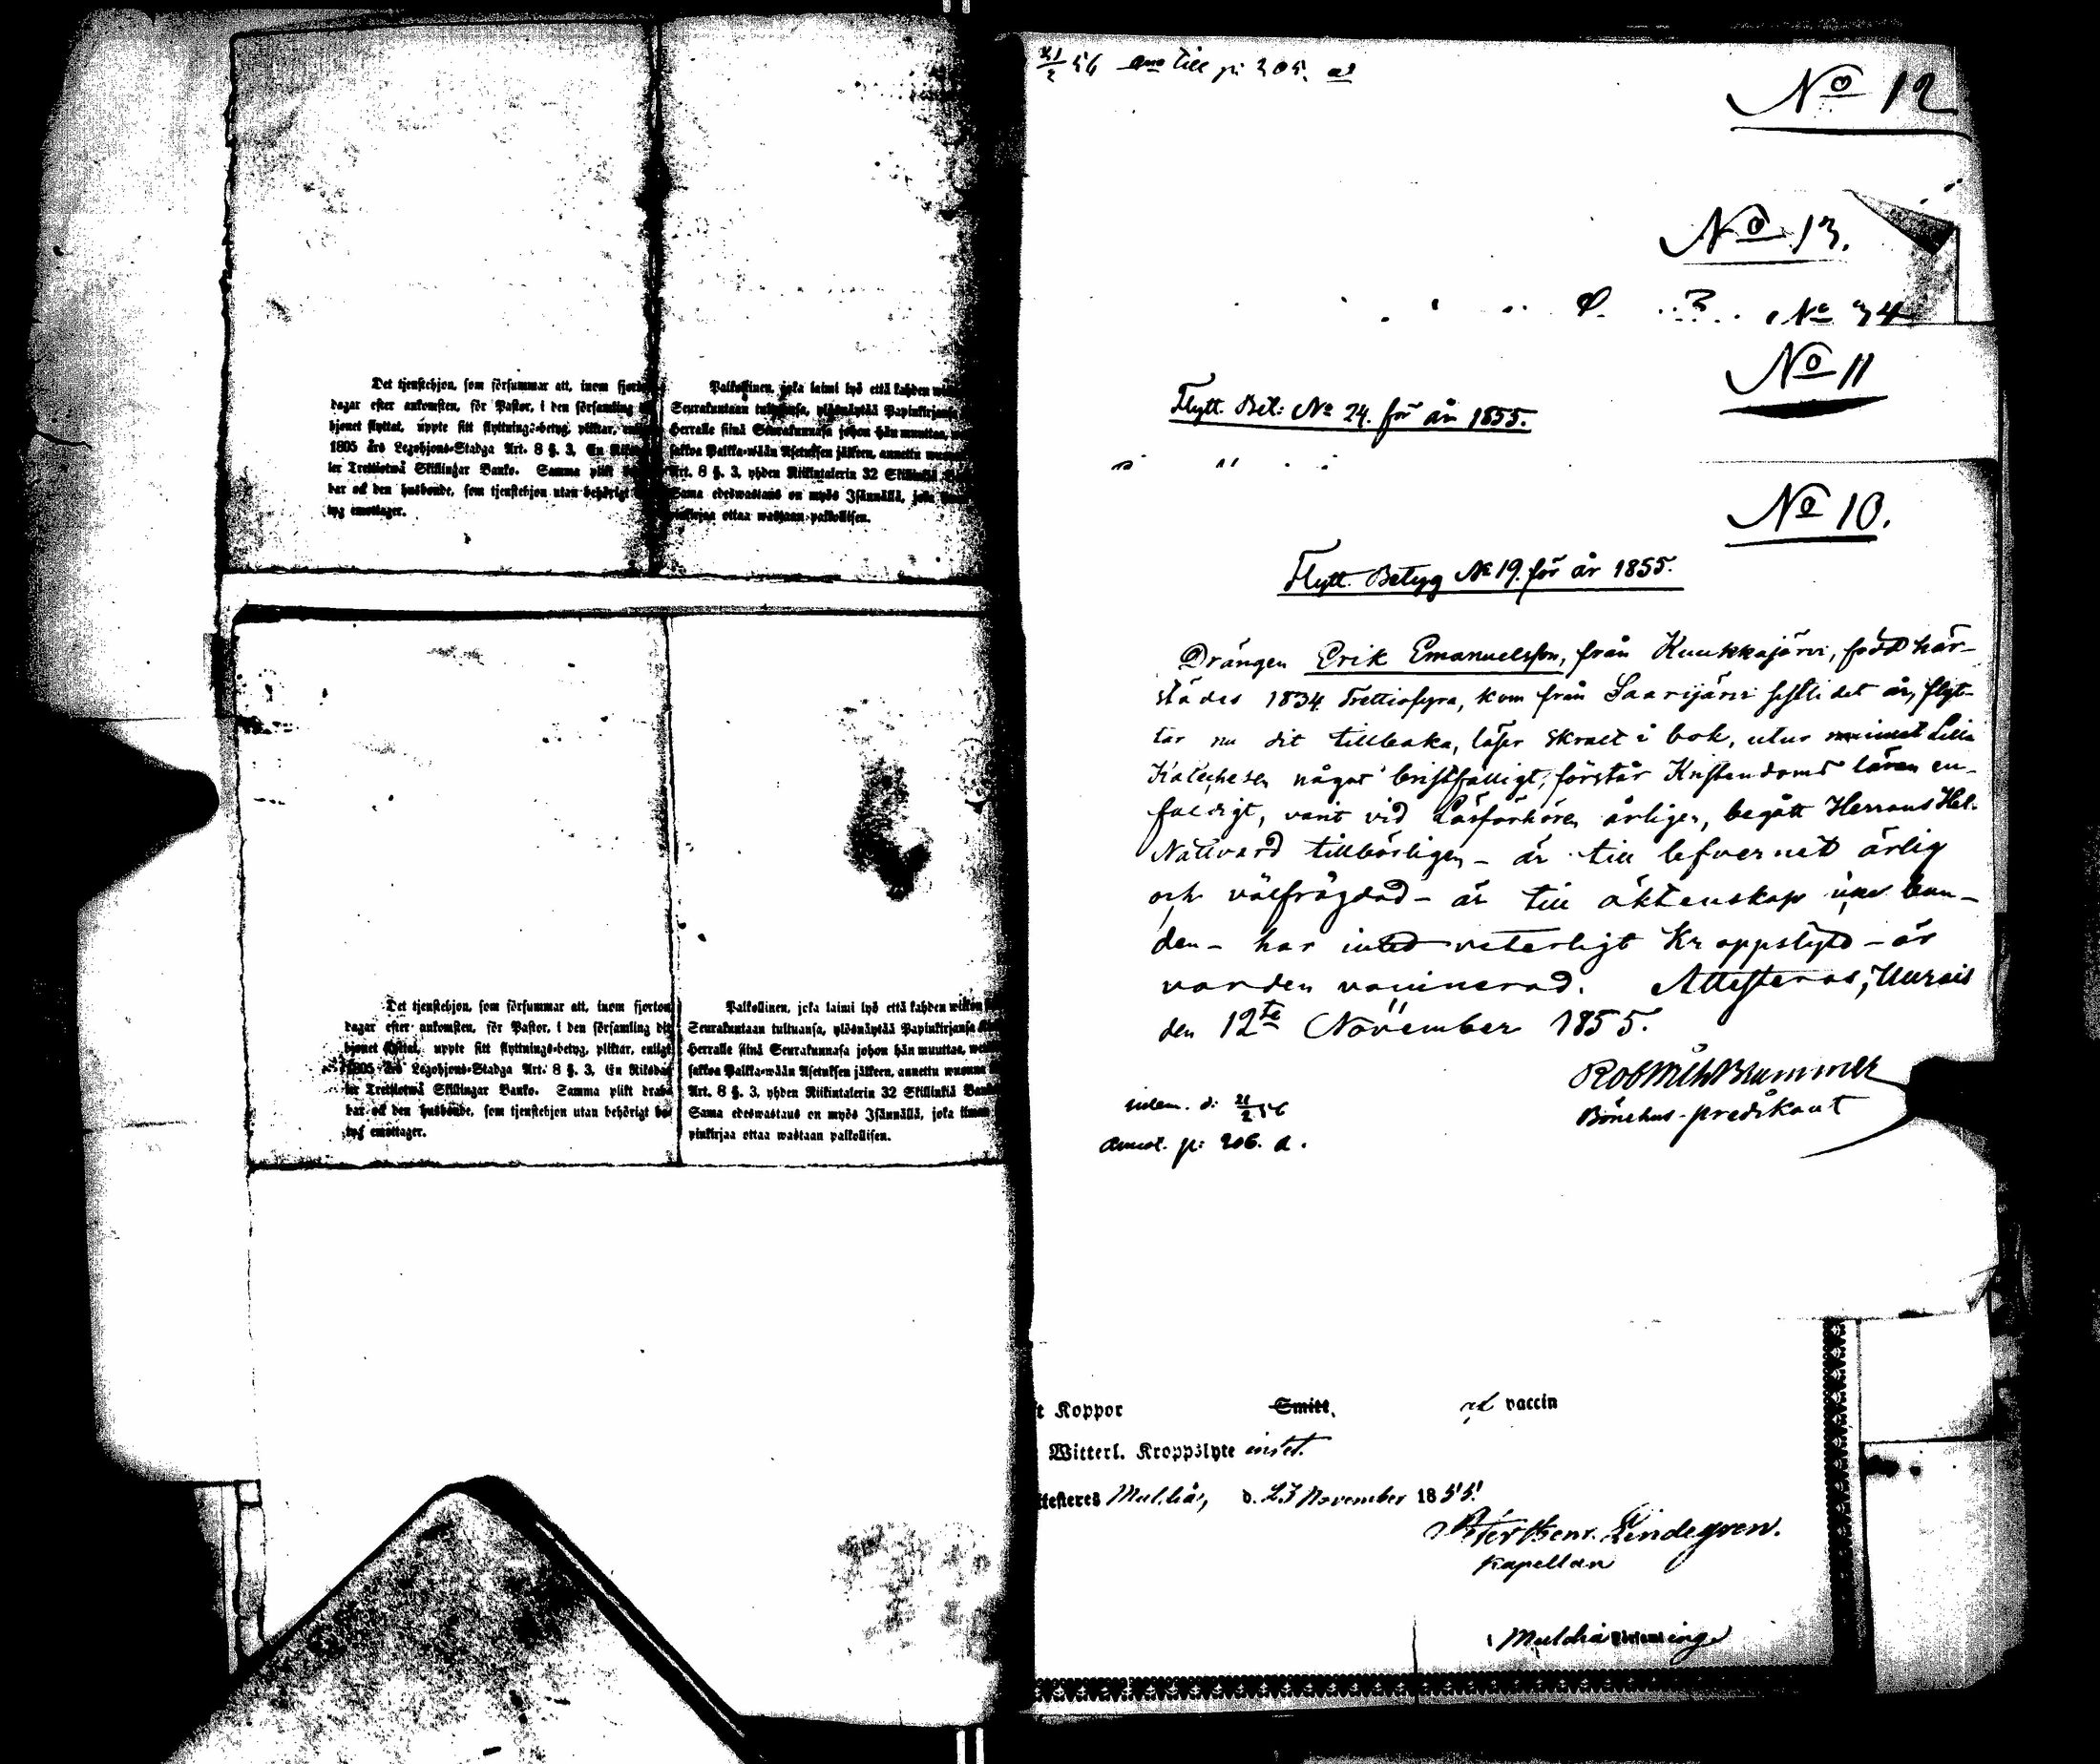 Det tjenstehjon, som försummar att, inom
dagar efter ankomsten, för Pastor, i den församling
hjonet flyttat, uppte sitt flyttnings-betyg, pliktar,
1805 års Legohjons-Stadga Art. 8 §. 3, En
ler Trettiotwå Skillingar Banko. Samma plikt
bar ock den husbonde, som tjenstehjon utan behörigt
tyg emottager.
Palkollinen, joka laimi lyö että kahden
Seurakuntaan tultuansa, ylösnäytää Papinkirjansa
Herralle siinä Seurakunnasa johon hän muuttaa,
sakkoa Palkka-wään Asetuksen jälkeen, annettu
Art. 8 §. 3, yhden Riikintalerin 32 Skillinkiä
Sama edeswastaus on myös Isännällä, joka
pinkirjaa ottaa wastaan palkollisen.
Det tjenstehjon, som försummar att, inom fjorton
dagar efter ankomsten, för Pastor, i den församling dit
hjonet flyttat, uppte sitt flyttnings-betyg, pliktar, enligt
1805 års Legohjons-Stadga Art. 8 §. 3, En Riksda
ler Trettiotwå Skillingar Banko. Samma plikt draba
bar ock den husbonde, som tjenstehjon utan behörigt be
tyg emottager.
Palkollinen, joka laimi lyö että kahden wiikon
Seurakuntaan tultuansa, ylösnäytää Papinkirjansa
Herralle siinä Seurakunnasa johon hän muuttaa,
sakkoa Palkka-wään Asetuksen jälkeen, annettu wuonna
Art. 8 §. 3, yhden Riikintalerin 32 Skillinkiä Ban
Sama edeswastaus on myös Isännällä, joka ilman
pinkirjaa ottaa wastaan palkollisen.
21/2 56 till p: 205.
No 12
No 13.
No 34
No 11
Flytt. Bet: No 24. för år 1855.
No 10.
Flytt. Betyg No 19. för år 1855.
Drängen Erik Emanuelsson, från Kuukkajärvi, född här-
städes 1834 Trettiofyra, kom från Saarijärvi sistl: det år, flyt-
tar nu dit tillbaka, läser skralt i bok, utur minnet Lilla
Katechesen något bristfälligt, förstår Kristendoms läran en-
faldigt, varit vid Läsförhören årligen, begått Herrans Hel.
Nattvard tillbörligen - är till lefvernet ärlig
och välfrägdad - är till äktenskap icke bun-
den - har intet veterligt Kroppslyte - är
vorden vaccinerad. Attesteras, Uurais
den 12te November 1855.
Rob Wilh Brummer
Bönehus-predikant
inlem. d: 21/2 56
Annot. p: 206. a.
t Koppor Smitt. vaccin
Witterl. Kroppslyte intet.
ttesteres Multia, d. 23 November 1855.
Petter Henr. Lindegren.
Kapellan
Multia